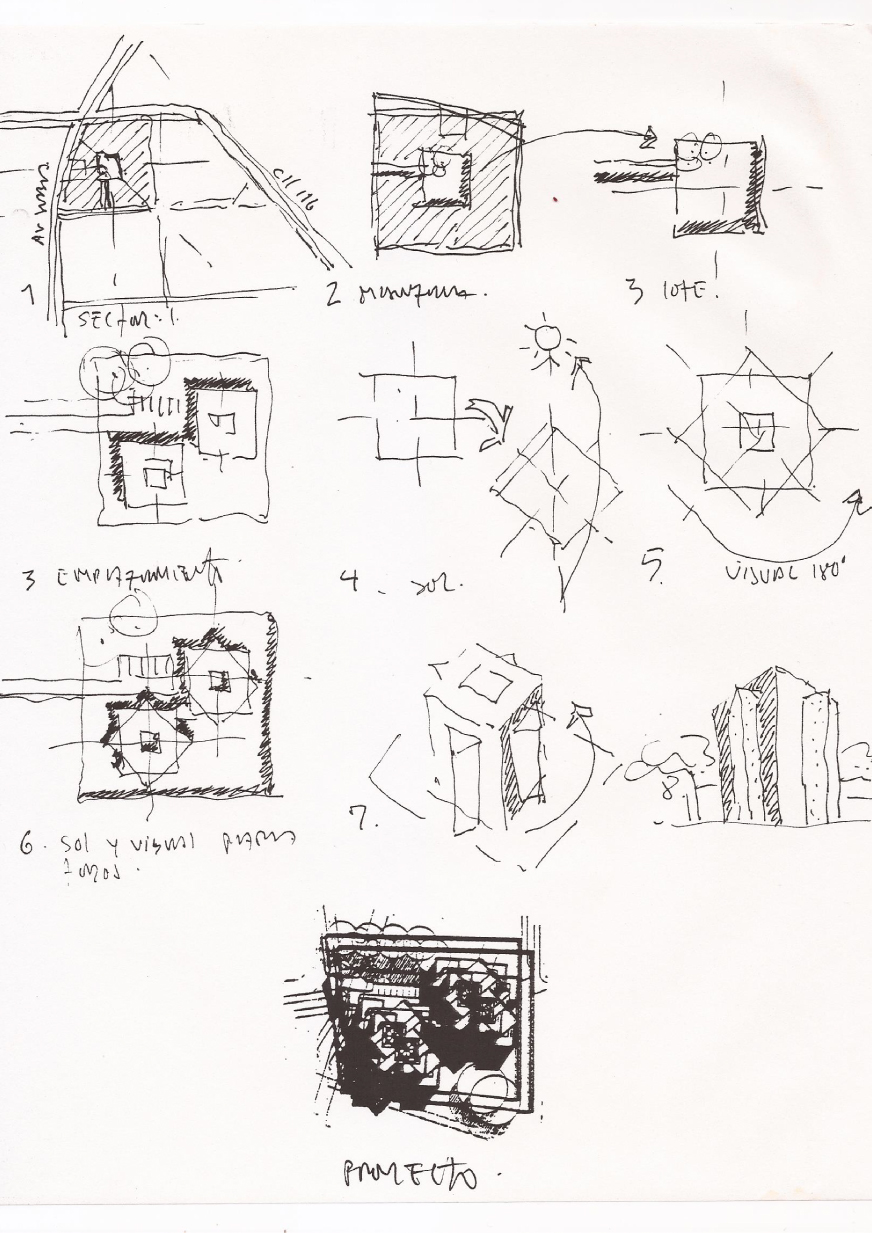 1
SECTOR: 1.
Cll 116
2 MANZANA.
3 LOTE!
3 EMPLAZAMIENTO
4. SOL.
5. VISUAL 180°
6. SOL Y VISUAL PLANTA
7.
8
PROYECTO.